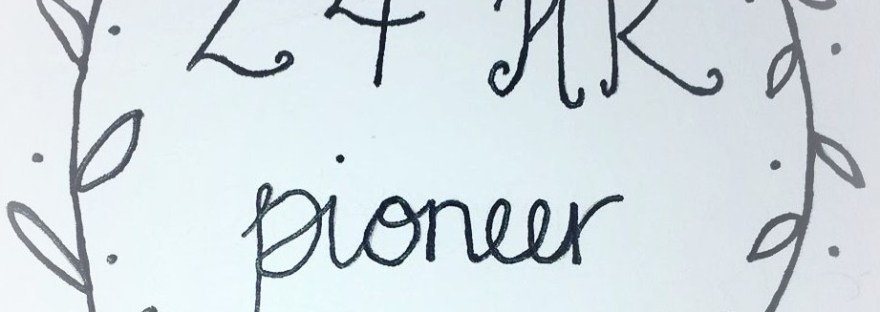 24 HR
pioneer